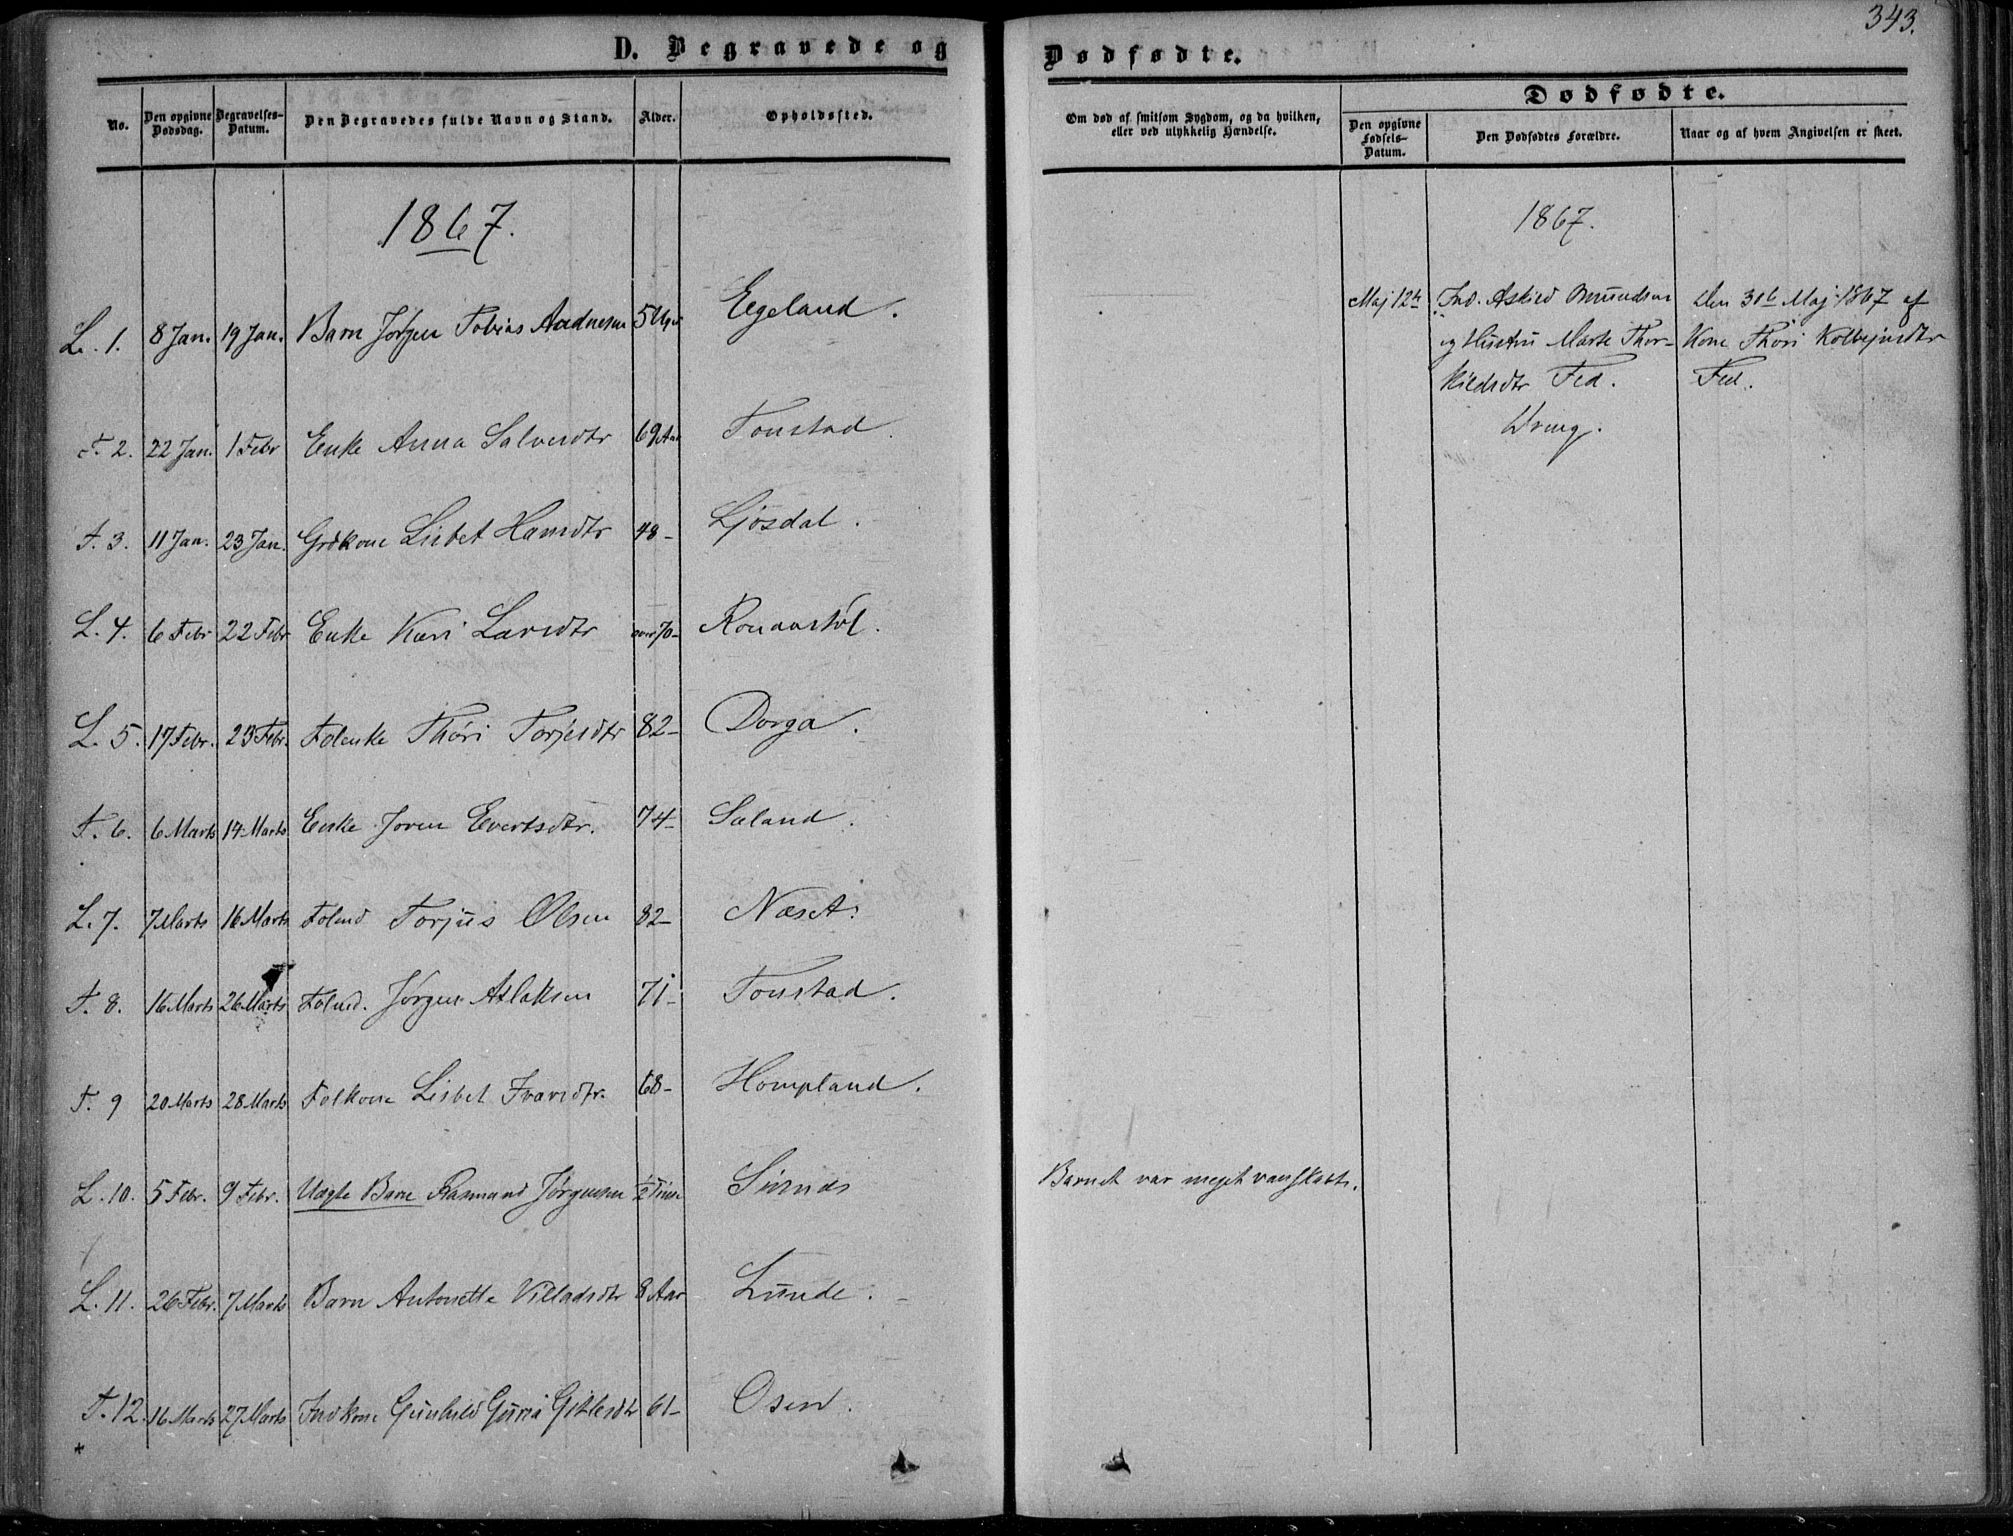 343.
D. Begravede og Dødfødte.
No. | Den opgivne Dødsdag. | Begravelses-Datum. | Den Begravedes fulde Navn og Stand. | Alder. | Opholdssted. | Om død af smitsom Sygdom, og da hvilken, eller ved ulykkelig Hændelse. | Dødfødte.
Den opgivne Fødsels-Datum. | Den Dødfødtes Forældre. | Naar og af hvem Angivelsen er skeet.
1867. | 1867.
L. 1. | 8 Jan. | 19 Jan. | Barn Jørgen Tobias Aadnesen | 5 Uger | Egeland.
F. 2. | 22 Jan. | 1 Febr | Enke Anna Salvesdtr | 69 Aar | Tonstad.
F. 3. | 11 Jan. | 23 Jan. | Grdkone Lisbet Hansdtr | 48 - | Ljosdal.
L. 4. | 6 Febr | 22 Febr | Enke Kari Larsdtr | over 70 -
L. 5. | 17 Febr. | 23 Febr. | Folenke Thöri Torjesdtr | 82 - | Dorga.
F. 6. | 6 Marts | 14 Marts | Enke Joren Evertsdtr. | 74 - | Sæland.
L. 7. | 7 Marts | 16 Marts | Folmd Torjus Olsen | 82 - | Næset.
F. 8. | 16 Marts | 26 Marts | Folmd. Jørgen Aslaksen | 71 - | Tonstad.
F. 9 | 20 Marts | 28 Marts | Folkone Lisbet Ivarsdtr. | 68 - | Hompland.
L. 10. | 5 Febr. | 9 Febr. | Uægte Barn Rasmund Jørgensen | 1/2 Time | Sirnæs | Barnet var meget vanskabt.
L. 11. | 26 Febr. | 7 Marts | Barn Antonette Villadsdtr | 8 Aar | Lunde.
F. 12. | 16 Marts | 27 Marts | Indkone Gunhild Guria Gitlesdtr | 61 - | Osen.
Maj 12te | Ind. Askild Omundsen | Den 30te Maj 1867 af
og Hustru Marte Thor- | Kone Thöri Kolbejnsdtr
kildsdtr Fed. | Fed.
Dreng.